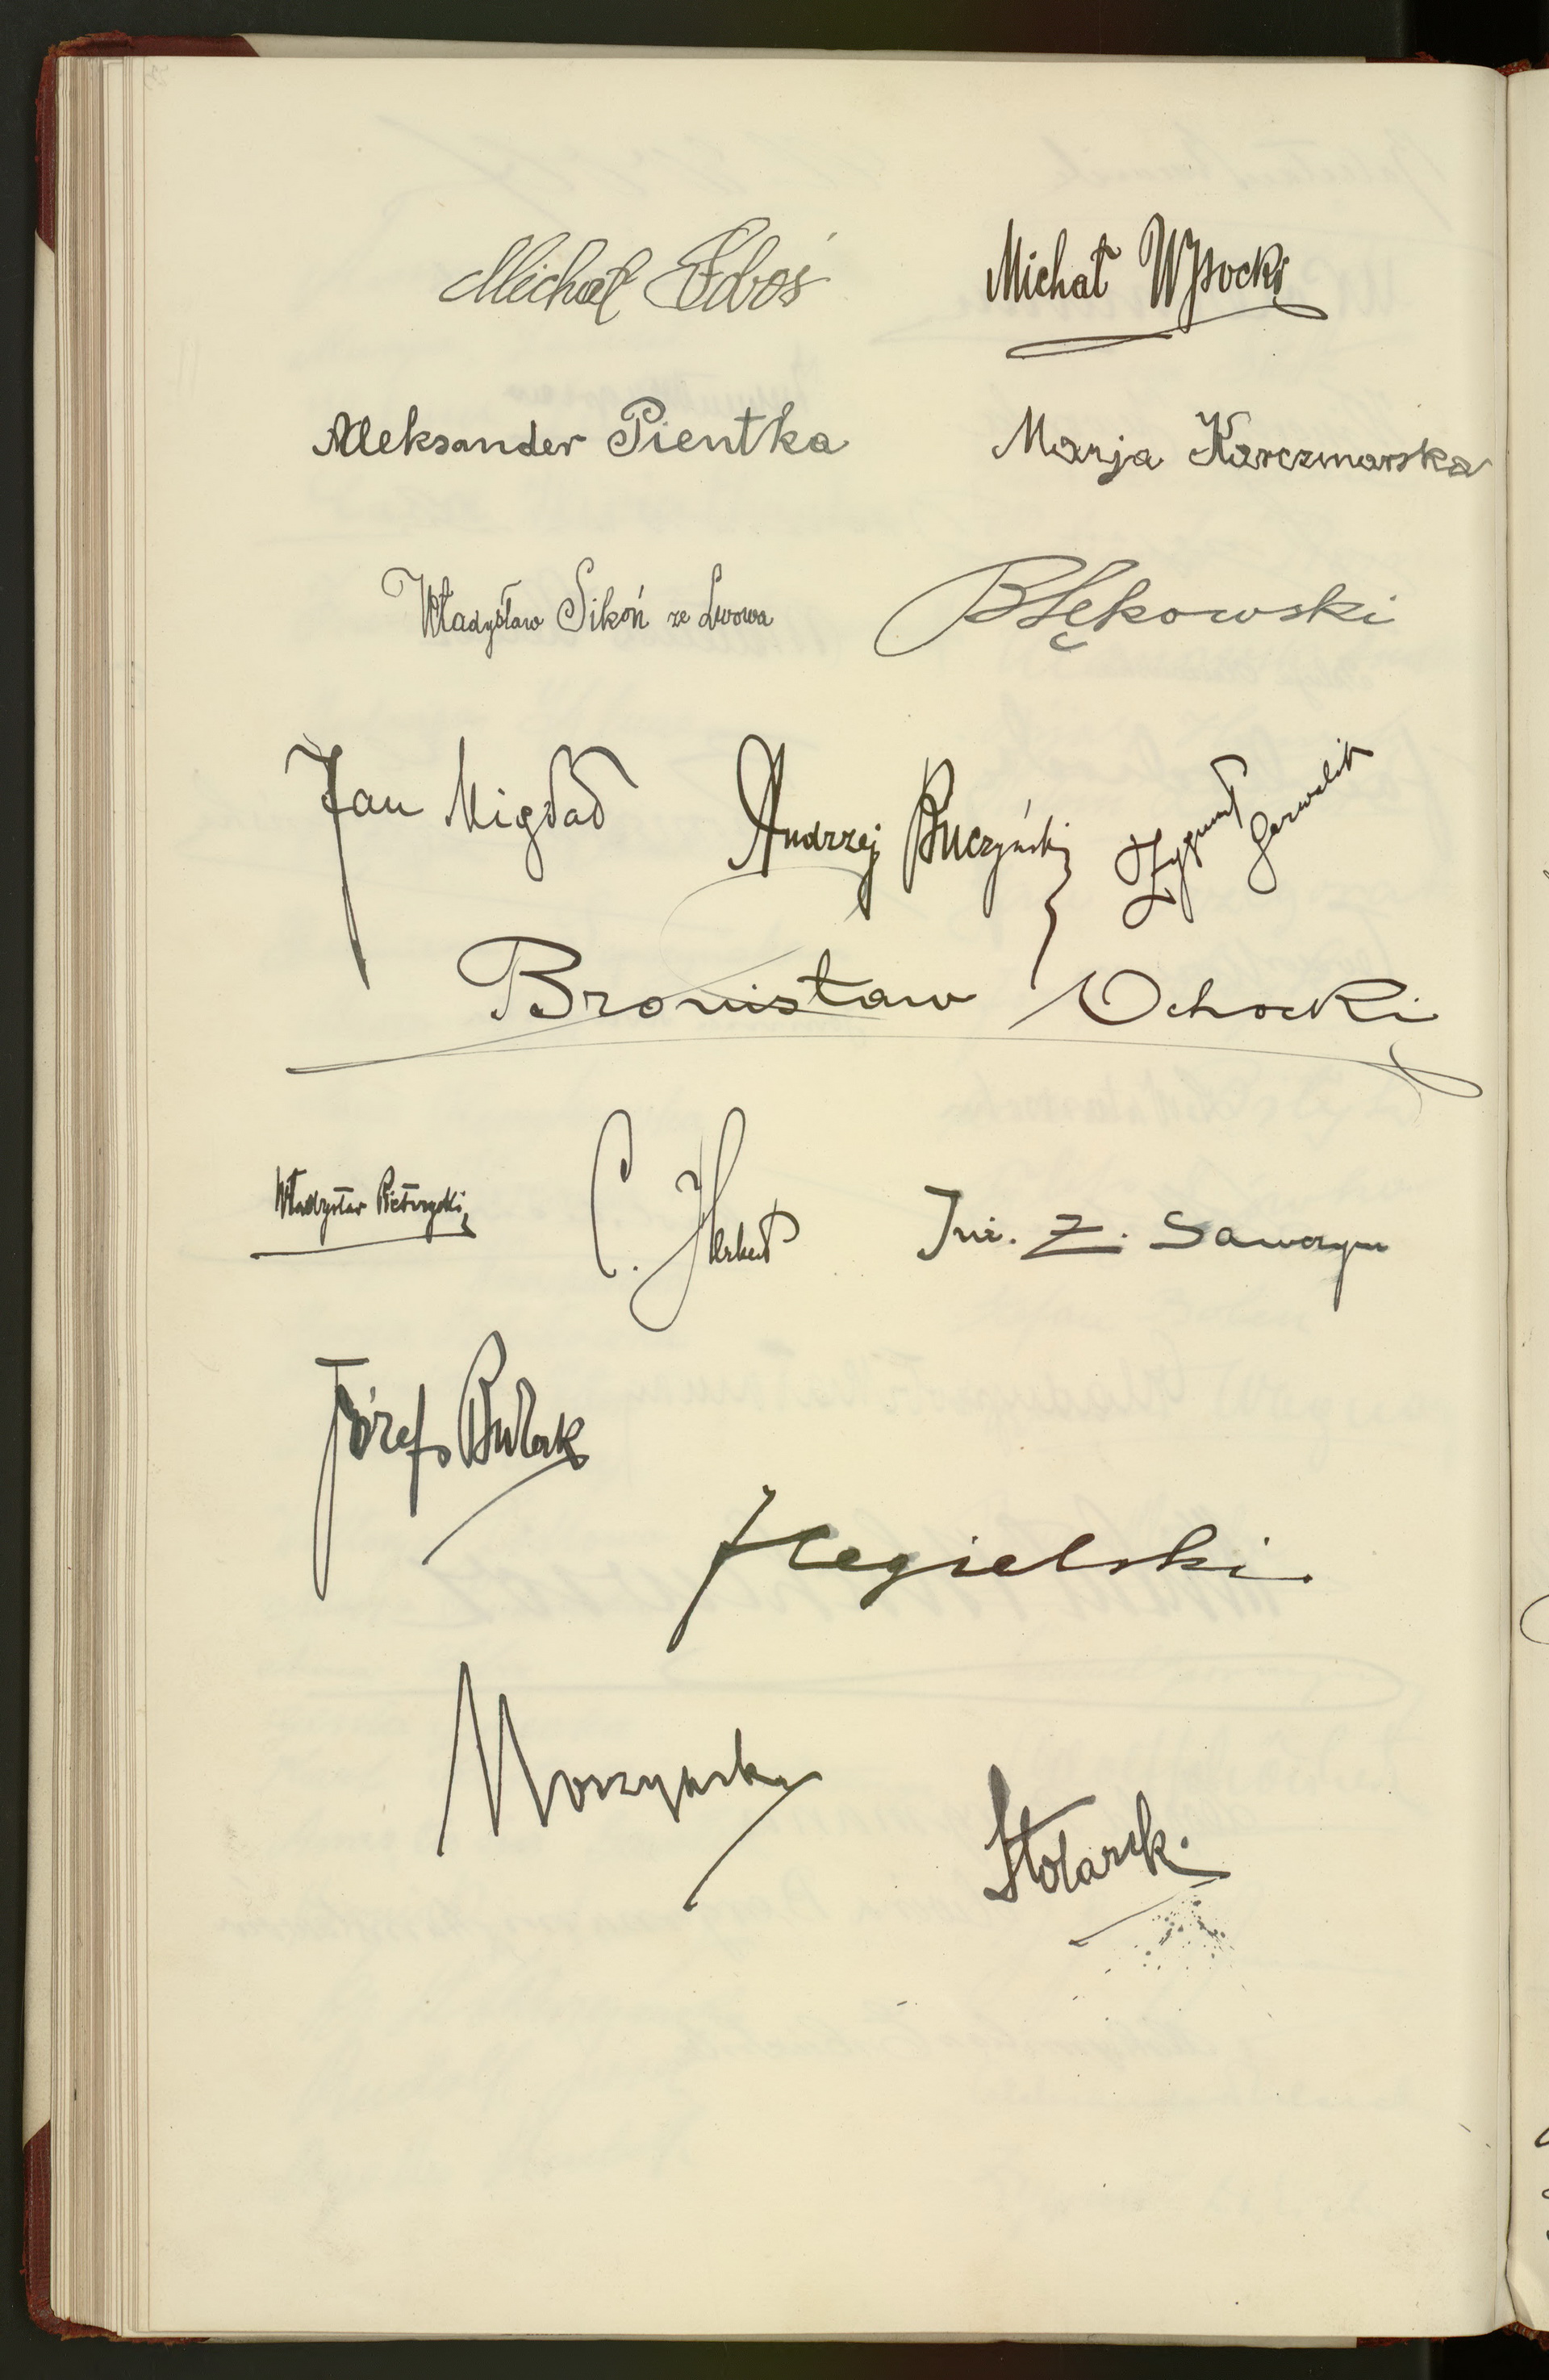 Michał Wysocki
Aleksander Pientka Marja Karczmarska
Władysław Sikoń ze Lwowa Błękowski
Jan Migdał Andrzej Buczyński Zygmunt
Bronisław Ochocki
Władysław C. Herbert Inż. Z. Sawczyn
Józef Bułak
Cegielski
Moszyński
Stolarek